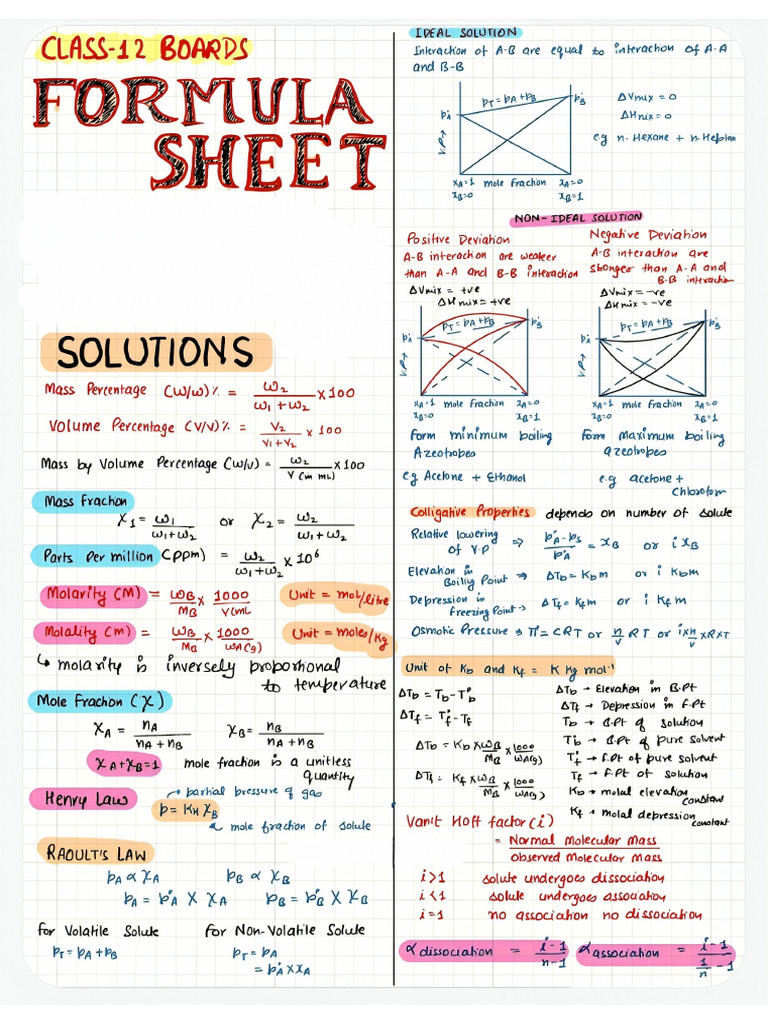 CLASS-12 BOARDS
FORMULA
SHEET
SOLUTIONS
Mass Percentage (W/W)% = ω₂/(ω₁+ω₂) × 100
Volume Percentage (V/V)% = V₂/(V₁+V₂) × 100
Mass by Volume Percentage (W/V) = ω₂/V (in mL) × 100
Mass fraction
χ₁ = ω₁/(ω₁+ω₂) or χ₂ = ω₂/(ω₁+ω₂)
Parts Per million (ppm) = ω₂/(ω₁+ω₂) × 10⁶
Molarity (M) = ωB/MB × 1000/V(mL) Unit = mol/litre
Molality (m) = ωB/MB × 1000/WA(g) Unit = moles/Kg
↳ molarity is inversely proportional
to temperature
Mole Fraction (χ)
χA = nA/(nA+nB) χB = nB/(nA+nB)
χA+χB=1 mole fraction is a unitless
quantity
Henry Law
→ partial pressure of gas
p = KH χB
mole fraction of solute
RAOULT'S LAW
pA ∝ χA pB ∝ χB
pA = p°A × χA pB = p°B × χB
for Volatile Solute for Non-Volatile Solute
pT = pA + pB pT = pA
= p°A × xA
IDEAL SOLUTION
Interaction of A-B are equal to interaction of A-A
and B-B
p°A
pT = pA + pB
p°B
V.P→
xA=1 mole fraction xA=0
xB=0 xB=1
ΔVmix = 0
ΔHmix = 0
eg n-Hexane + n-Heptan
NON-IDEAL SOLUTION
Positive Deviation
A-B interaction are weaker
than A-A and B-B interaction
ΔVmix = +ve
ΔHmix = +ve
p°A
pT = pA + pB
p°B
V.P→
xA=1 mole fraction xA=0
xB=0 xB=1
form minimum boiling
Azeotropes
eg Acetone + Ethanol
Negative Deviation
A-B interaction are
stronger than A-A and
B-B interaction
ΔVmix = -ve
ΔHmix = -ve
p°A
pT = pA + pB
p°B
V.P→
xA=1 mole fraction xA=0
xB=0 xB=1
form maximum boiling
azeotropes
e.g acetone +
Chloroform
Colligative Properties depends on number of solute
Relative lowering
of V.P ⇒ (p°A - ps)/p°A = xB or i xB
Elevation in
Boiling Point → ΔTb = Kbm or i Kbm
Depression in
freezing Point → ΔTf = Kfm or i Kfm
Osmotic Pressure → π = CRT or n/v RT or i×n/v × R×T
Unit of Kb and Kf = K Kg mol⁻¹
ΔTb = Tb - T°b
ΔTf = T°f - Tf
ΔTb = Kb × ωB/MB × 1000/WA(g)
ΔTf = Kf × ωB/MB × 1000/WA(g)
ΔTb → Elevation in B.Pt
ΔTf → Depression in F.Pt
Tb → B.Pt of solution
T°b → B.Pt of pure solvent
T°f → F.Pt of pure solvent
Tf → F.Pt of solution
Kb → molal elevation
constant
Kf → molal depression
constant
Van't Hoff factor (i)
= Normal Molecular Mass
Observed Molecular Mass
i>1 solute undergoes dissociation
i<1 solute undergoes association
i=1 no association no dissociation
α dissociation = (i-1)/(n-1) α association = (i-1)/(1/n - 1)